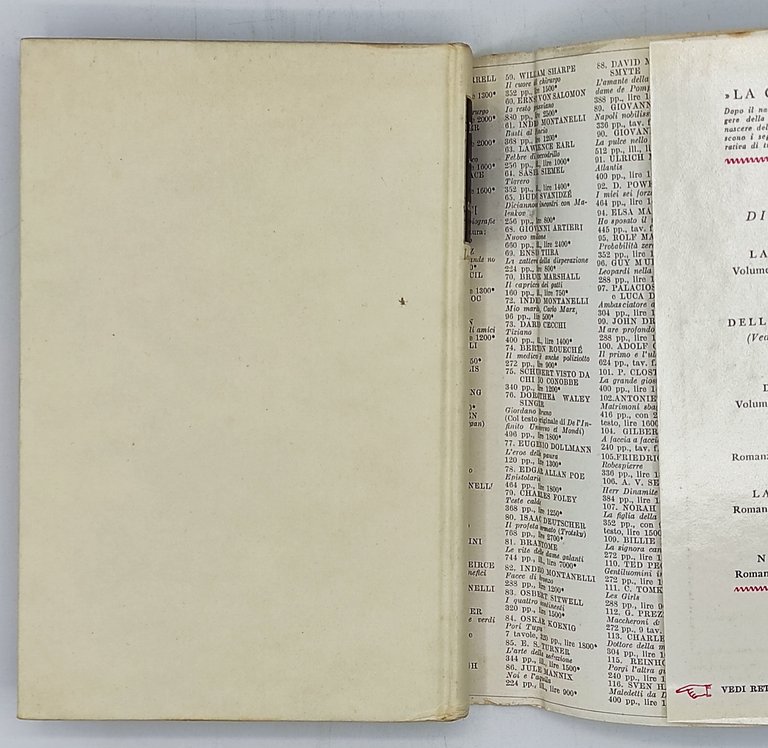 RRELL
e 1300*
e 2000*
e 2000*
e 1600*
e 1600*
e 1300*
li amici
e 1200*
NG
NINI
EIRCE
NELLI
e verdi
59. WILLIAM SHARPE
Il cuore e chirurgo
352 pp., lire 1500*
60. ERNST VON SALOMON
Io resto prussiano
880 pp., lire 2500*
61. INDRO MONTANELLI
Busti al Lucio
368 pp., lire 1200*
63. LAWRENCE EARL
Febbre di coccodrillo
256 pp., ill., lire 1000*
64. SASHA SIEMEL
Tigrero
352 pp., ill., lire 1400*
65. BUDU SVANIDZÉ
Diciannove incontri con Ma-
lenkov
256 pp., lire 800*
68. GIOVANNI ARTIERI
Nuovo
660 pp., ill., lire 2400*
69. ENSIO TIIRA
La zattera della disperazione
224 pp., lire 800*
70. BRUCE MARSHALL
Il capriccio dei gatti
160 pp., ill., lire 750*
72. INDRO MONTANELLI
Mio marito, Carlo Marx,
96 pp., lire 500*
73. DARIO CECCHI
Tiziano
400 pp., ill., lire 1400*
74. BERTON ROUECHÉ
Il medico è anche poliziotto
272 pp., lire 900*
75. SCHUBERT VISTO DA
340 pp., lire 1200*
76. DOROTHEA WALEY
SINGER
Giordano Bruno
(Col testo originale di De l'in-
finito Universo et Mondi)
496 pp., lire 1800*
77. EUGENIO DOLLMANN
L'eroe della paura
120 pp., lire 1300*
78. EDGAR ALLAN POE
Epistolario
464 pp., lire 1800*
79. CHARLES FOLEY
Teste calde
368 pp., lire 1250*
80. ISAAC DEUTSCHER
Il profeta armato (Trotsky)
768 pp., lire 2700*
81. BRANTOME
Le vite delle dame galanti
744 pp., ill., lire 7000*
82. INDRO MONTANELLI
Facce di bronzo
288 pp., lire 1200*
83. OSBERT SITWELL
I quattro continenti
320 pp., lire 1500*
84. OSKAR KOENIG
Pori Tupu
7 tavole, 320 pp., lire 1800*
85. E. S. TURNER
L'arte della seduzione
344 pp., ill., lire 1500*
86. JULE MANNIX
Noi e l'aquila
224 pp., ill., lire 900*
88. DAVID M
SMYTE
L'amante della
dame de Pom
388 pp., lire 1
89. GIOVANN
Napoli nobiliss
336 pp., tav. f
90. GIOVAN
La pulce nello
512 pp., ill., li
91. ULRICH
Atlantis
400 pp., lire 1
92. D. POWE
I miei sei forz
464 pp., lire 1
94. ELSA MA
Ho sposato il
445 pp., tav. f
95. ROLF MA
Probabilità zer
352 pp., lire 1
96. GUY MU
Leopardi nella
288 pp., lire 1
97. PALACIOS
e LUCA D
Ambasciatore
304 pp., lire 1
99. JOHN DR
Mare profondo
288 pp., lire 1
100. ADOLF G
Il primo e l'ul
624 pp., tav. f
101. P. CLOST
La grande gios
400 pp., lire 1
102. ANTONIE
Matrimoni sba
416 pp., con 2
testo, lire 1600
104. GILBER
A faccia a facci
240 pp., tav. f
105. FRIEDRIC
Robespierre
336 pp., lire 1
106. A. V. SE
Herr Dinamite
384 pp., lire 1
107. NORAH
La figlia della
352 pp., con
testo, lire 1500
109. BILLIE
La signora can
272 pp., lire 1
110. TED PE
Gentiluomini i
272 pp., lire 1
111. C. TOMK
Les Girls
288 pp., lire 9
112. G. PREZ
Maccheroni di
272 pp., 9 tav.
113. CHARLE
Dottore della m
304 pp., lire 1
115. REINHO
Porgi l'altra g
240 pp., lire 1
116. SVEN H
Maledetti da
400 pp., lire 1
»LA
Dopo il
gere della
nascere del
scono i se
rativa di t
DI
LA
Volume
DELL
(Ved
D
Volum
Romanz
LA
Roman
N
Roman
VEDI RET